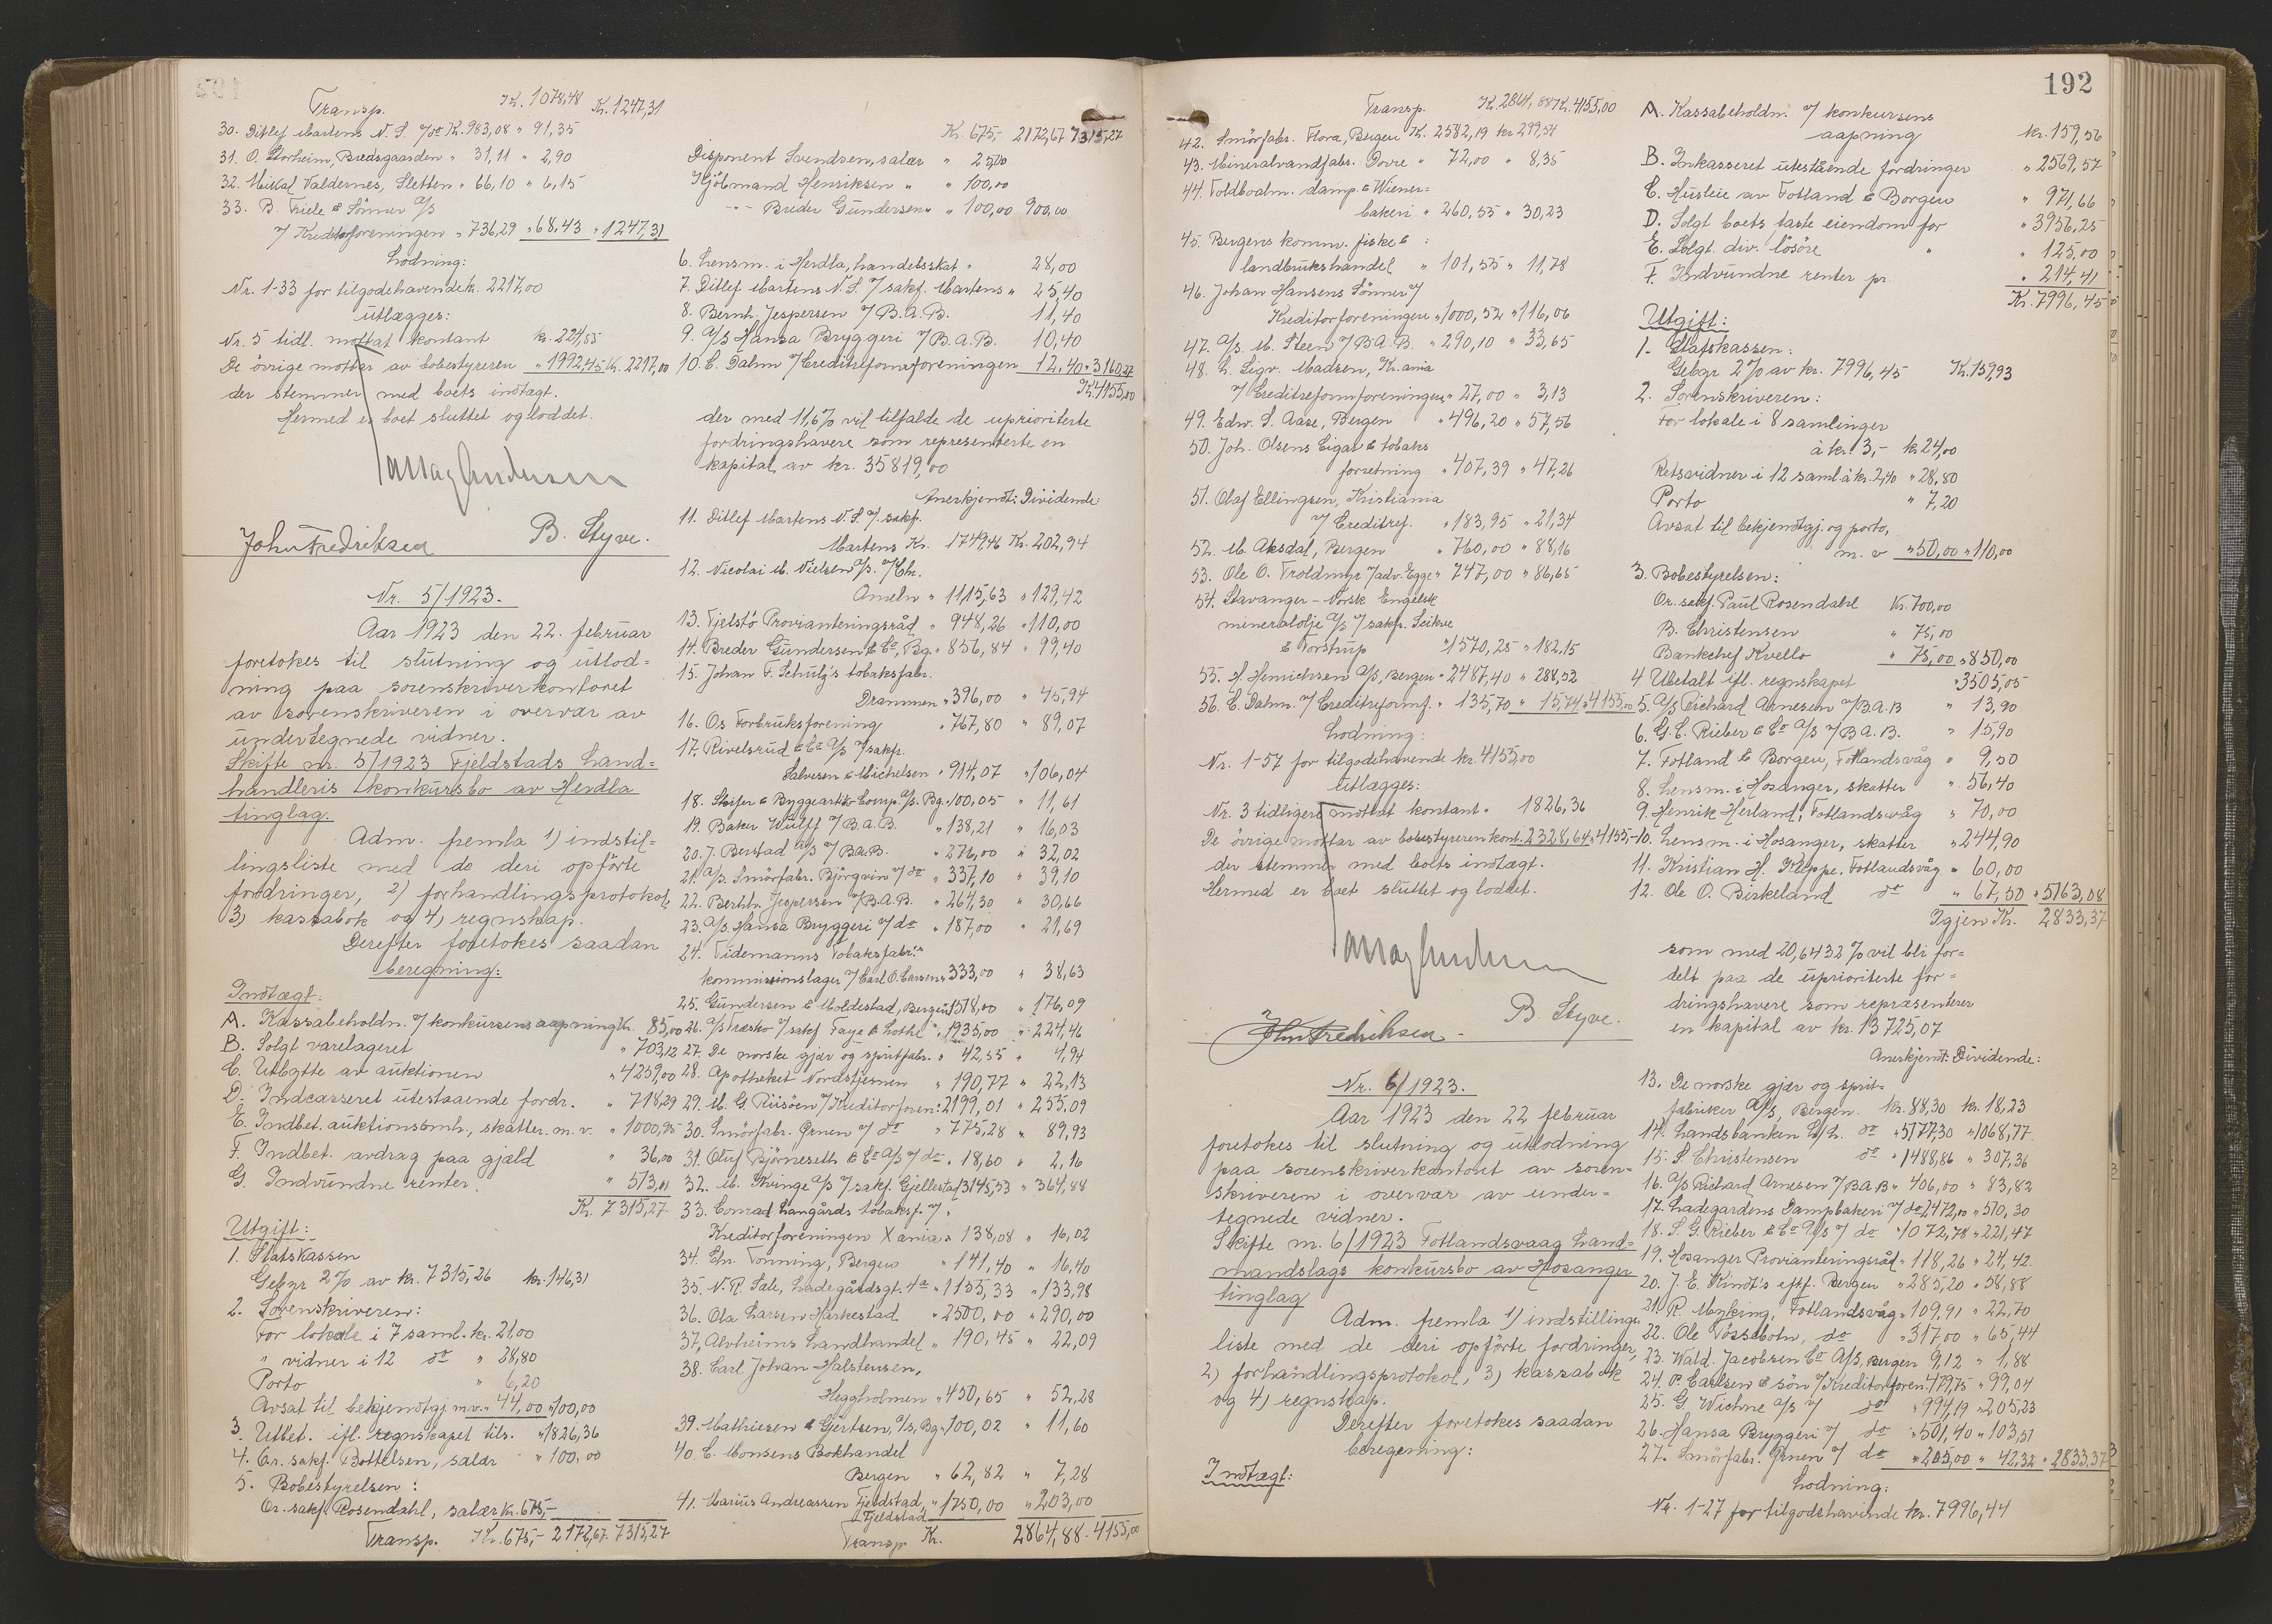 Transp. K. 1078,48 Kr. 1247,31
30. Ditlef Martens N.S. 7/do K. 983,08 " 91,35
31. O. Storheim, Bredsgaarden " 31,11 " 2,90
32. Mikal Valdernes, Sletten " 66,10 " 6,15
33. B. Friele & Sönner A/S
v/ Kreditorforeningen " 736,29 " 68,43 " 1247,31
Lodning:
Nr. 1-33 for tilgodehavende k. 2217,00
utlægges:
Nr. 5 tidl. mottat kontant kr. 224,55
De övrige mottar av bobestyreren " 1992,45 K. 2217,00
der stemmer med boets indtægt.
Hermed er boet sluttet og loddet.
John Fredriksen B. Styve.
Nr. 5/1923.
Aar 1923 den 22. februar
foretokes til slutning og utlod=
ning paa sorenskriverkontoret
av sorenskriveren i overvær av
undertegnede vidner.
Skifte nr. 5/1923 Fjeldstads Land=
handleris konkursbo av Herdla
tinglag.
Adm. fremla 1) indstil=
lingsliste med de deri opförte
fordringer, 2) forhandlingsprotokol,
3) kassabok og 4) regnskap.
Derefter foretokes saadan
beregning:
Indtægt:
A. Kassabeholdn. v/ konkursens aapning K. 85,00
B. Solgt varelageret " 703,12
C. Utbytte av auktionen " 4259,00
D. Indcasseret utestaaende fordr. " 718,29
E. Indbet. auktionsomk., skatter m.v. " 1000,85
F. Indbet. avdrag paa gjæld " 36,00
G. Indvundne renter. " 513,01
K. 7315,27
Utgift:
1. Statskassen
Gebyr 2% av kr. 7315,26 kr. 146,31
2. Sorenskriveren:
For lokale i 7 saml. kr. 21,00
" vidner i 12 do " 28,80
Porto " 6,20
Avsat til bekjendtgj. m.v. " 44,00 " 100,00
3. Utbet. ifl. regnskapet tils. " 1826,36
4. Or. sakf. Bottelsen, salær " 100,00
5. Bobestyrelsen:
Or. sakf. Rosendahl, salær K. 675,-
Transp. Kr. 675,- 2172,67. 7315,27
Kr. 675,- 2172,67 7315,27
Disponent Svendsen, salær " 25,00
Kjöbmand Henriksen " " 100,00
-"- Breder Gundersen " " 100,00 900,00
6. Lensm. i Herdla, handelsskat " 28,00
7. Ditlef Martens N.S. v/ sakf. Martens " 25,40
8. Bernh. Jespersen v/ B.A.B. 11,40
9. A/S Hansa Bryggeri v/ B.A.B. 10,40
10. C. Dahm v/ Creditreformforeningen 12,40 " 3160,27
K. 4155,00
der med 11,6% vil tilfalde de uprioriterte
fordringshavere som representerte en
kapital av kr. 35819,00
Anerkjendt: Dividende:
11. Ditlef Martens N.S. v/ sakf.
Martens Kr. 1749,46 Kr. 202,94
12. Nicolai M. Nielsen A/S. v/ Chr.
Ameln " 1115,63 " 129,42
13. Fjelstö Provianteringsråd " 948,26 " 110,00
14. Breder Gundersen & Co, Bg. " 856,84 " 99,40
15. Johan F. Schulg's tobaksfabr.
Drammen " 396,00 " 45,94
16. Os Forbruksforening " 767,80 " 89,07
17. Rivelsrud & Co A/S v/ sakf.
Salvesen & Michelsen " 914,07 " 106,04
18. Skifer & Byggeartkl. Comp. A/S. Bg. " 100,05 " 11,61
19. Baker Wulff v/ B.A.B. " 138,21 " 16,03
20. J. Berstad A/S v/ B.A.B. " 276,00 " 32,02
21. A/S. Smörfabr. Björgvin v/ do " 337,10 " 39,10
22. Bernh. Jespersen v/ B.A.B. " 264,30 " 30,66
23. A/S. Hansa Bryggeri v/ do " 187,00 " 21,69
24. Tidemanns Tobaksfabr.
kommissionslager v/ Carl O. Larsen " 333,00 " 38,63
25. Gundersen & Moldestad, Bergen " 1518,00 " 176,09
26. A/S Træsko v/ sakf. Faye & Lothe " 1935,00 " 224,46
27. De norske gjær og spritfabr. " 42,55 " 4,94
28. Apotheket Nordstjernen " 190,77 " 22,13
29. M. G. Riisöen v/ Kreditorforen: " 2199,01 " 255,09
30. Smörfabr. Grnen v/ do " 775,28 " 89,93
31. Oluf Björneseth & Co A/S v/ do " 18,60 " 2,16
32. M. Kvinge A/S v/ sakf. Gjellestad " 3145,53 " 364,88
33. Conrad Langårds tobaksf. v/
Kreditorforeningen Xania " 138,08 " 16,02
34. Chr. Tonning, Bergen " 141,40 " 16,40
35. N.R. Sale, Ladegårdsgt. 4a " 1155,33 " 133,98
36. Ola Larsen Harkestad " 2500,00 " 290,00
37. Alvheims Landhandel " 190,45 " 22,09
38. Carl Johan Halstensen,
Heggholmen " 450,65 " 52,28
39. Mathiesen & Gjertsen, A/S, Bg. " 100,02 " 11,60
40. C. Monsens Bokhandel
Bergen " 62,82 " 7,28
41. Marius Andreassen Fjeldstad, " 1750,00 " 203,00
Fjeldstad
Transp. Kr. 2864,88. 4155,00
192
Transp. K. 2864,88 K. 4155,00
42. Smörfabr. Flora, Bergen K. 2582,19 kr. 299,54
43. Mineralvandfabr. Dovre " 72,00 " 8,35
44. Toldbodalm. damp & Wiener=
bakeri " 260,55 " 30,23
45. Bergens komm. fiske &
landbrukshandel " 101,55 " 11,78
46. Johan Hansens Sönner v/
Kreditorforeningen " 1000,52 " 116,06
47. A/S. M. Steen v/ B.A.B. " 290,10 " 33,65
48. L. Sigv. Madsen, Kr.ania
v/ Creditreformforeningen " 27,00 " 3,13
49. Edw. S. Aase, Bergen " 496,20 " 57,56
50. Joh. Olsens Cigar & tobaks
forretning " 407,39 " 47,26
51. Olaf Ellingsen, Kristiania
v/ Creditref. " 183,95 " 21,34
52. M. Aksdal, Bergen " 760,00 " 88,16
53. Ole O. Troldmyr v/ adv. Egge " 747,00 " 86,65
54. Stavanger - Norsk Engelsk
mineralolje A/S v/ sakf. Seikve
& Torstrup " 1570,25 " 182.15
55. H. Henrichsen A/S, Bergen " 2487,40 " 288,52
56. C. Dahm. v/ Creditreformf. " 135,70 " 15,74 " 4155,00
Lodning:
Nr. 1-57 for tilgodehavende kr. 4155,00
utlægges:
Nr. 3 tidligere mottat kontant " 1826,36
De övrige mottar av bobestyreren kont. 2328,64 " 4155,-
der stemmer med boets indtægt.
Hermed er boet sluttet og loddet.
John Fredriksen - B. Styve.
Nr. 6/1923.
Aar 1923 den 22 februar
foretokes til slutning og utlodning
paa sorenskriverkontoret av soren-
skriveren i overvær av under=
tegnede vidner.
Skifte nr. 6/1923 Fotlandsvaag Land=
mandslags konkursbo av Hosanger
tinglag
Adm. fremla 1) indstillings
liste med de deri opförte fordringer,
2) forhandlingsprotokol, 3) kassabok
og 4) regnskap.
Derefter foretokes saadan
beregning:
Indtægt:
A. Kassabeholdn. v/ konkursens
aapning kr. 159,56
B. Inkasseret utestående fordringer " 2569,57
C. Husleie av Fotland & Borgen " 971,66
D. Solgt boets faste eiendom for " 3956,25
E. Solgt. div. lösöre " " 125,00
F. Indvundne renter pr. " 214,41
Kr. 7996,45
Utgift:
1. Statskassen:
Gebyr 2% av kr. 7996,45 K. 159,93
2. Sorenskriveren:
For lokale i 8 samlinger
à kr. 3,- kr. 24,00
Retsvidner i 12 saml. à kr. 2,40 " 28,80
Porto " 7,20
Avsat til bekjendtgj. og porto,
m. v " 50,00 " 110,00
3. Bobestyrelsen:
Or. sakf. Paul Rosendahl K. 700,00
B. Christensen " 75,00
Bankchef Kvello " 75,00 " 850,00
4 Utbetalt ifl. regnskapet " 3505,05
5. A/S Richard Arnesen v/ B.A.B " 13,90
6. G.C. Rieber & Co A/S v/ B.A.B. " 15,90
7. Fotland & Borgen, Fotlandsvåg " 9,50
8. Lensm. i Hosanger, skatter " 56,40
9. Henrik Herland, Fotlandsvåg " 70,00
10. Lensm. i Hosanger, skatter " 244,90
11. Kristian H. Kleppe, Fotlandsvåg " 60,00
12. Ole O. Birkeland do " 67,50 " 5163,08
Igjen Kr. 2833,37
som med 20,6432% vil bli for=
delt paa de uprioriterte for=
dringshavere som repræsenterer
en kapital av kr. 13725,07
Anerkjendt: Dividende:
13. De norske gjær og sprit=
fabriker A/S, Bergen. kr. 88,30 kr. 18,23
14. Landsbanken L/L. do " 5177,30 " 1068,77
15. S Christensen do " 1488,86 " 307,36
16. A/S Richard Arnesen v/ B A B " 406,00 " 83,82
17. Ladegardens Dampbakeri v/ do 2472,00 " 510,30
18. S.G. Rieber & Co A/S v/ do " 1072,78 " 221,47
19. Hosanger Provianteringsråd " 118,26 " 24,42
20. J.E. Kindt's eftf. Bergen " 285,20 " 58,88
21. R. Myking, Fotlandsvåg " 109,91 " 22,70
22. Ole Tössebotn, do " 317,00 " 65,44
23. Wald. Jacobsen Co A/S, Bergen 9,12 " 1,88
24. P. Carlsen & sön v/ Kreditorforen 479,75 " 99,04
25. G. Wichne A/S v/ do " 994,19 " 205,23
26. Hansa Bryggeri v/ do " 501,40 " 103,51
27. Smörfabr. Grnen v/ do " 205,00 " 42,32 " 2833,37
Lodning:
Nr. 1-27 for tilgodehavende kr. 7996,44